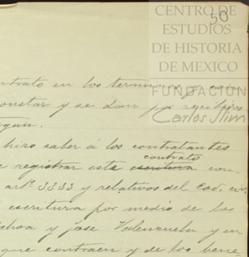 CENTRO DE
50
ESTUDIOS
DE HISTORIA
DE MEXICO
FUNDACIÓN
Carlos Slim
contrato en los terminos
constar y se dan por recibidos
hizo saber á los contratantes
contrato
registrar este escritura con
art.º 3333 y relativos del Cod. civ.
escritura por medio de las
choa y jose Valenzuela y un
que contraen y de los bene